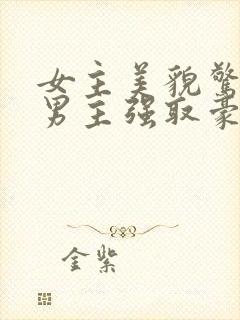 女主美貌驚
男主强取豪
金紫